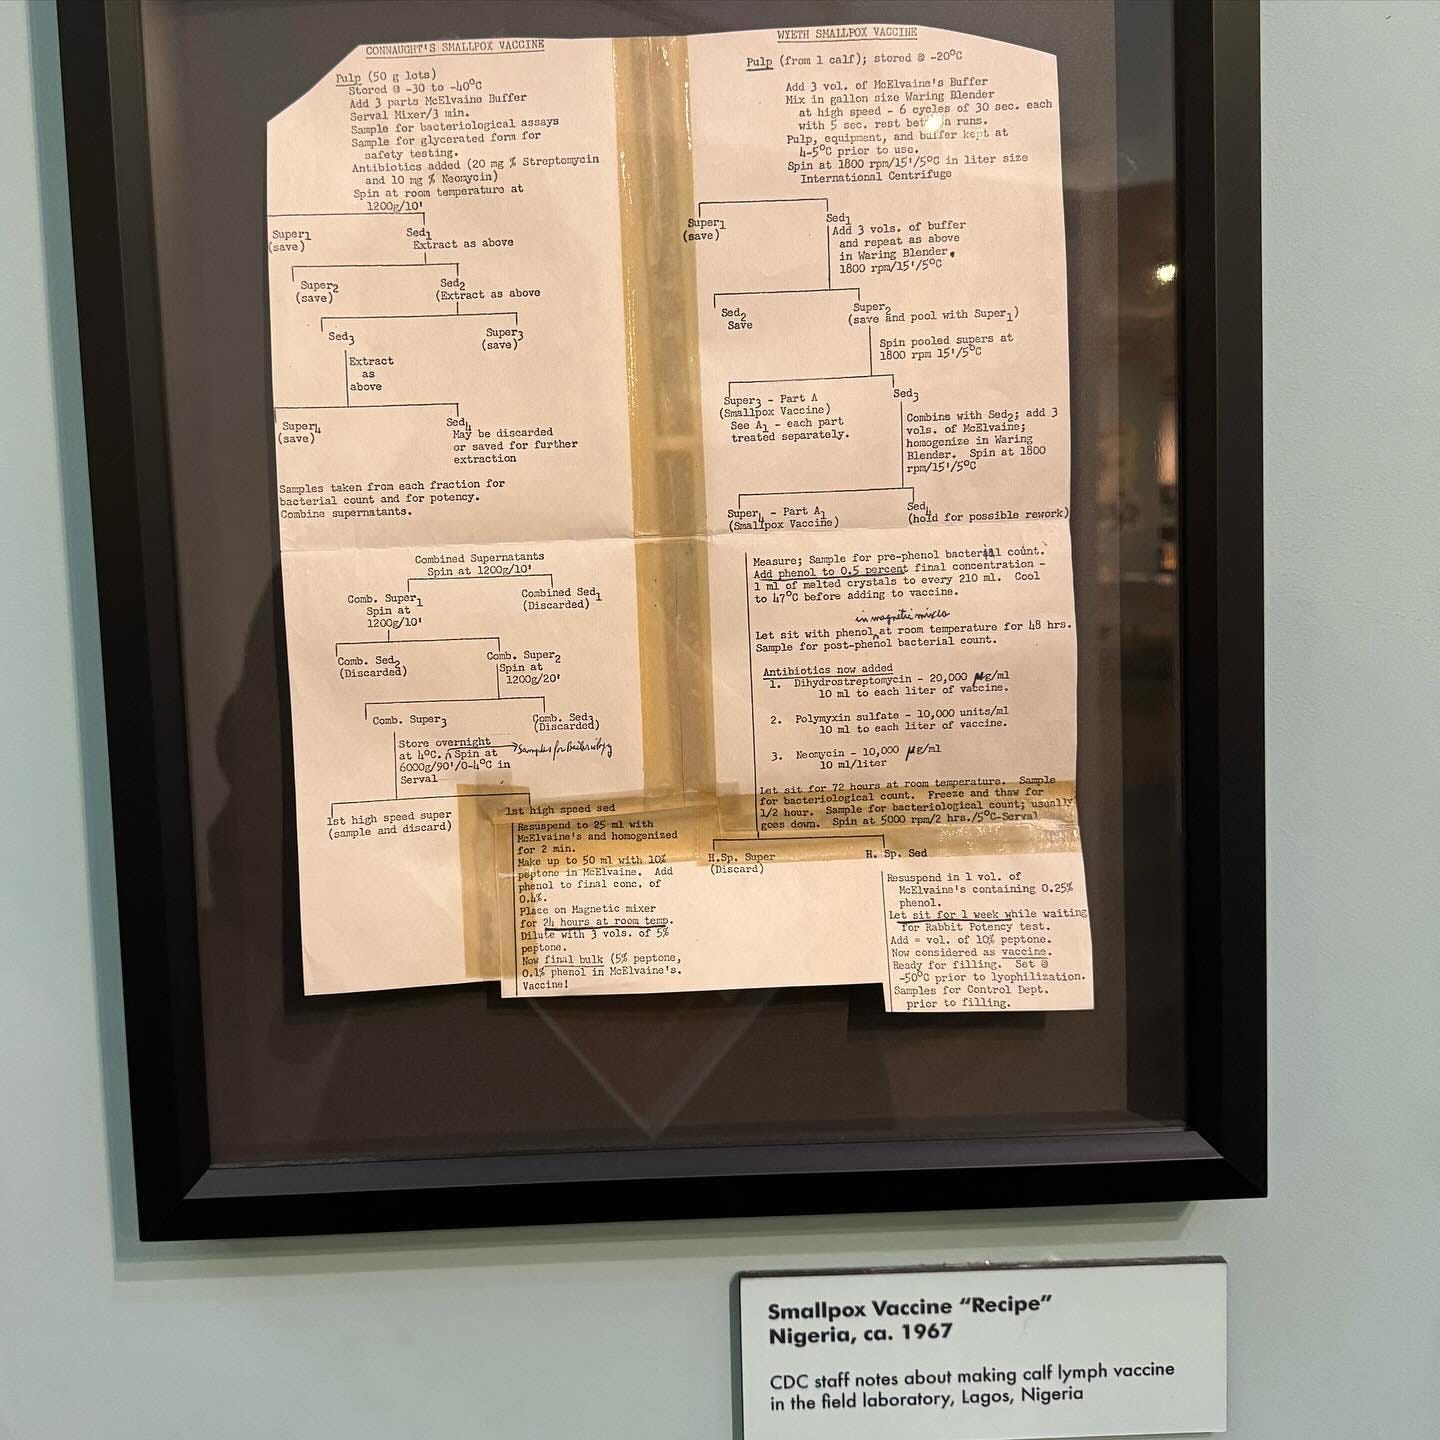 CONNAUGHT'S SMALLPOX VACCINE
Pulp (50 g lots)
Stored @ -30 to -40°C
Add 3 parts McElvaine Buffer
Serval Mixer/3 min.
Sample for bacteriological assays
Sample for glycerated form for
safety testing.
Antibiotics added (20 mg % Streptomycin
and 10 mg % Neomycin)
Spin at room temperature at
1200g/10'
Super1
(save)
Sed1
Extract as above
Super2
(save)
Sed2
(Extract as above
Sed3
Super3
(save)
Extract
as
above
Super4
(save)
Sed4
May be discarded
or saved for further
extraction
Samples taken from each fraction for
bacterial count and for potency.
Combine supernatants.
Combined Supernatants
Spin at 1200g/10'
Comb. Super1
Spin at
1200g/10'
Combined Sed1
(Discarded)
Comb. Sed2
(Discarded)
Comb. Super2
Spin at
1200g/20'
Comb. Super3
Comb. Sed3
(Discarded)
Store overnight
at 4°C. Spin at
6000g/90'/0-4°C in
Serval
Samples for Bacteriology
1st high speed super
(sample and discard)
1st high speed sed
Resuspend to 25 ml with
McElvaine's and homogenized
for 2 min.
Make up to 50 ml with 10%
peptone in McElvaine. Add
phenol to final conc. of
0.4%.
Place on Magnetic mixer
for 24 hours at room temp.
Dilute with 3 vols. of 5%
peptone.
Now final bulk (5% peptone,
0.1% phenol in McElvaine's.
Vaccine!
WYETH SMALLPOX VACCINE
Pulp (from 1 calf); stored @ -20°C
Add 3 vol. of McElvaine's Buffer
Mix in gallon size Waring Blender
at high speed - 6 cycles of 30 sec. each
with 5 sec. rest between runs.
Pulp, equipment, and buffer kept at
4-5°C prior to use.
Spin at 1800 rpm/15'/5°C in liter size
International Centrifuge
Super1
(save)
Sed1
Add 3 vols. of buffer
and repeat as above
in Waring Blender.
1800 rpm/15'/5°C
Sed2
Save
Super2
(save and pool with Super1)
Spin pooled supers at
1800 rpm 15'/5°C
Super3 - Part A
(Smallpox Vaccine)
See A1 - each part
treated separately.
Sed3
Combine with Sed2; add 3
vols. of McElvaine;
homogenize in Waring
Blender. Spin at 1800
rpm/15'/5°C
Super4 - Part A1
(Smallpox Vaccine)
Sed4
(hold for possible rework)
Measure; Sample for pre-phenol bacterial count.
Add phenol to 0.5 percent final concentration -
1 ml of melted crystals to every 210 ml. Cool
to 47°C before adding to vaccine.
in magnetic mixer
Let sit with phenol at room temperature for 48 hrs.
Sample for post-phenol bacterial count.
Antibiotics now added
1. Dihydrostreptomycin - 20,000 µg/ml
10 ml to each liter of vaccine.
2. Polymyxin sulfate - 10,000 units/ml
10 ml to each liter of vaccine.
3. Neomycin - 10,000 µg/ml
10 ml/liter
Let sit for 72 hours at room temperature. Sample
for bacteriological count. Freeze and thaw for
1/2 hour. Sample for bacteriological count; usually
goes down. Spin at 5000 rpm/2 hrs./5°C-Serval
H.Sp. Super
(Discard)
H. Sp. Sed
Resuspend in 1 vol. of
McElvaine's containing 0.25%
phenol.
Let sit for 1 week while waiting
for Rabbit Potency test.
Add = vol. of 10% peptone.
Now considered as vaccine.
Ready for filling. Set @
-50°C prior to lyophilization.
Samples for Control Dept.
prior to filling.
Smallpox Vaccine “Recipe”
Nigeria, ca. 1967
CDC staff notes about making calf lymph vaccine
in the field laboratory, Lagos, Nigeria